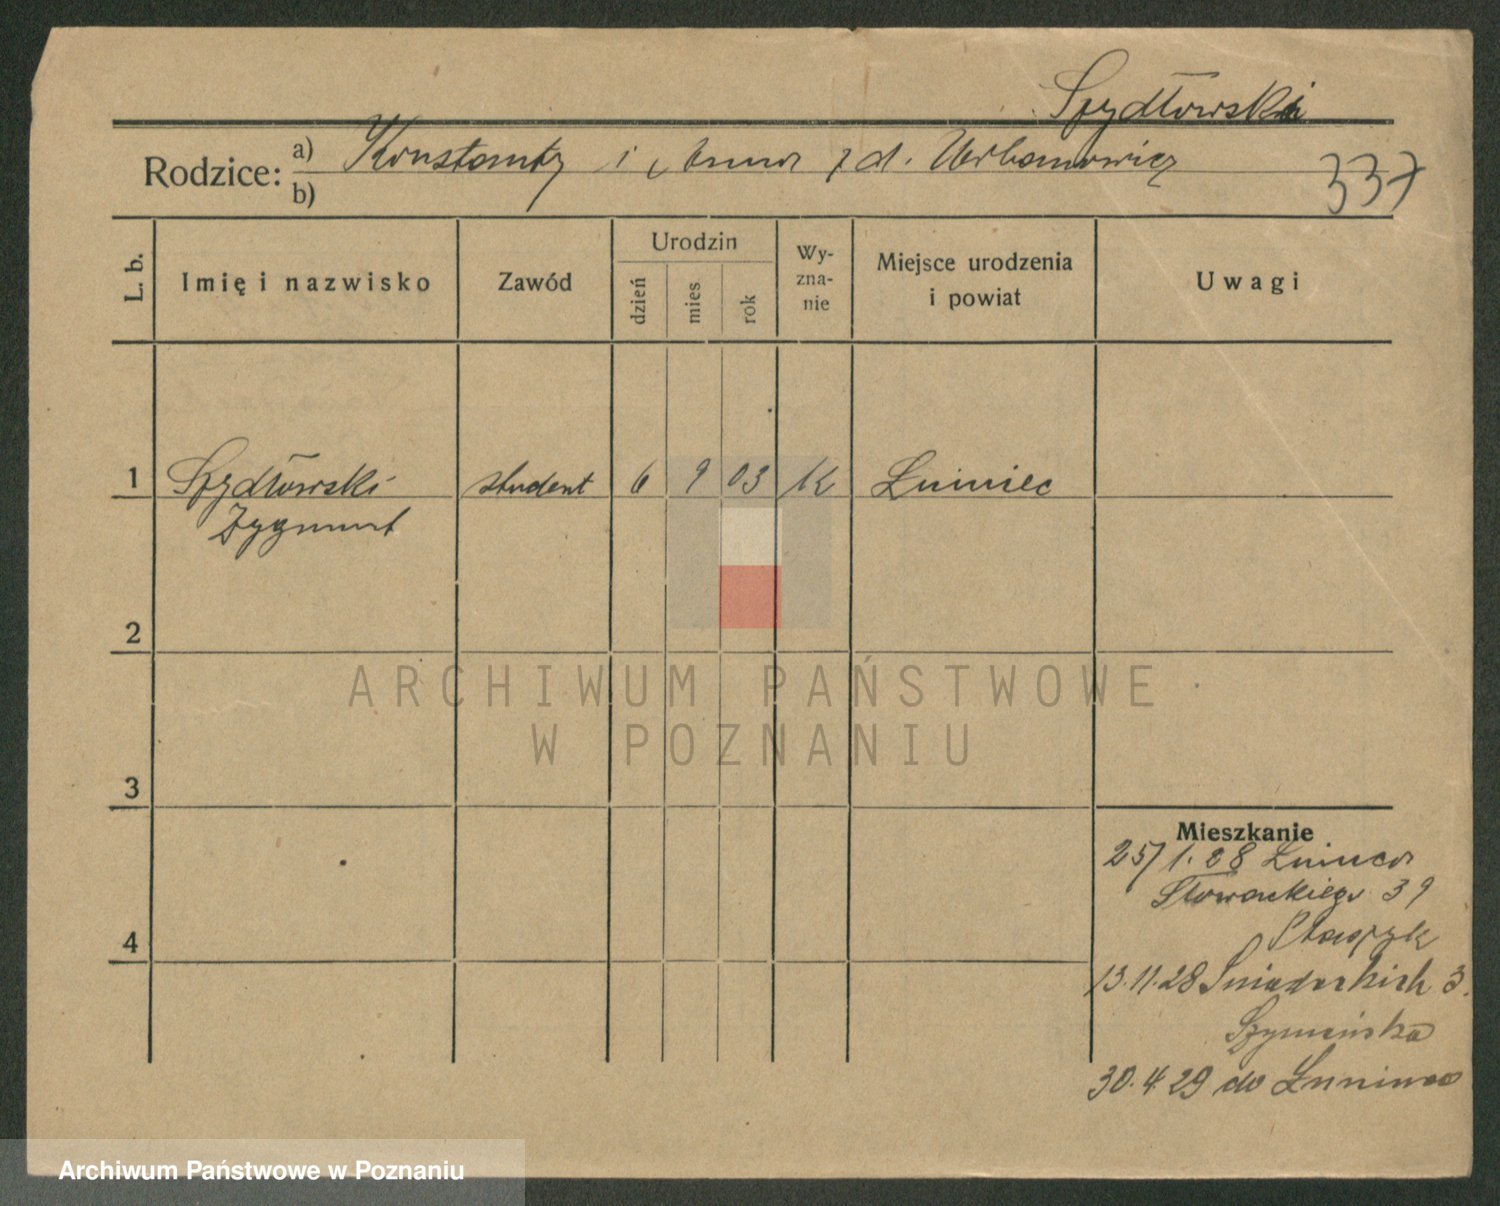 Szydłowski
Rodzice: a) Konstanty i Anna z d. Urbanowicz
b)
337
L. b.
Imię i nazwisko
Zawód
Urodzin
dzień
mies
rok
Wy-
zna-
nie
Miejsce urodzenia
i powiat
Uwagi
1 Szydłowski student 6 9 03 rk Łuniniec
Zygmunt
2
3
4
Mieszkanie
25/1.28 Łunińca
Słowackiego 39
Ptaszyk
13.11.28 Śniadeckich 3.
Szymańska
30.4.29 do Łunińca
ARCHIWUM PAŃSTWOWE
W POZNANIU
Archiwum Państwowe w Poznaniu